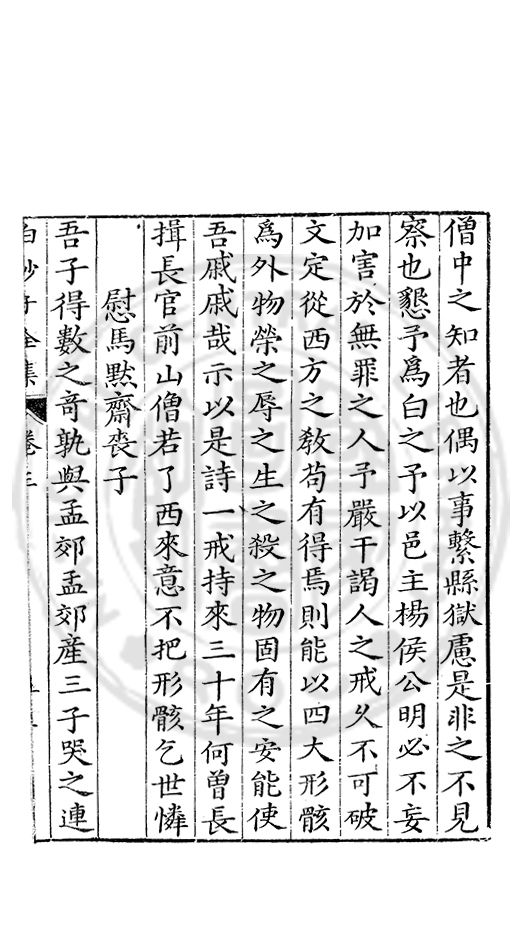 僧中之知者也偶以事繫縣獄慮是非之不見
察也懇予爲白之予以邑主楊侯公明必不妄
加害於無罪之人予嚴干謁人之戒久不可破
文定從西方之敎苟有得焉則能以四大形骸
爲外物榮之辱之生之殺之物固有之安能使
吾戚戚哉示以是詩一戒持來三十年何曾長
揖長官前山僧若了西來意不把形骸乞世憐
慰馬黙齋喪子
吾子得數之奇孰與孟郊孟郊産三子哭之連
白沙子全集
卷三